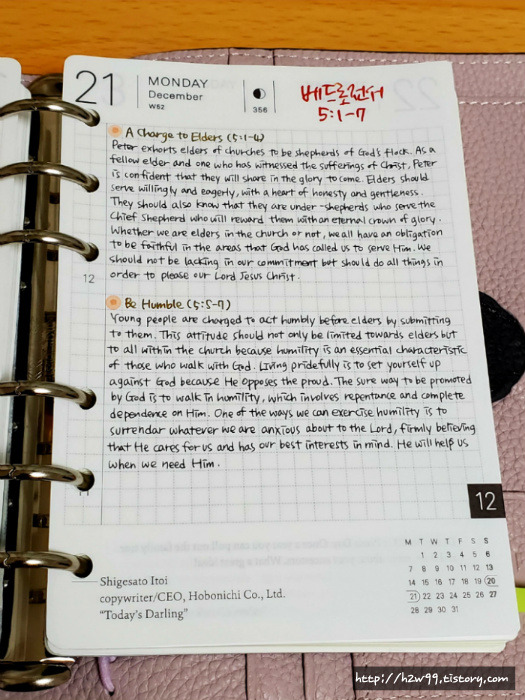 21
MONDAY
December
W52
356
베드로전서
5:1-7
A Charge to Elders (5:1-4)
Peter exhorts elders of churches to be shepherds of God's flock. As a
fellow elder and one who has witnessed the sufferings of Christ, Peter
is confident that they will share in the glory to come. Elders should
serve willingly and eagerly, with a heart of honesty and gentleness.
They should also know that they are under-shepherds who serve the
Chief Shepherd who will reward them with an eternal crown of glory.
Whether we are elders in the church or not, we all have an obligation
to be faithful in the areas that God has called us to serve Him. We
should not be lacking in our commitment but should do all things in
12
order to please our Lord Jesus Christ.
Be Humble (5:5-7)
Young people are charged to act humbly before elders by submitting
to them. This attitude should not only be limited towards elders but
to all within the church because humility is an essential characteristic
of those who walk with God. Living pridefully is to set yourself up
against God because He opposes the proud. The sure way to be promoted
by God is to walk in humility, which involves repentance and complete
dependence on Him. One of the ways we can exercise humility is to
surrendar whatever we are anxious about to the Lord, firmly believing
that He cares for us and has our best interests in mind. He will help us
when we need Him.
12
Shigesato Itoi
copywriter/CEO, Hobonichi Co., Ltd.
"Today's Darling"
M T W T F S S
1 2 3 4 5 6
7 8 9 10 11 12 13
14 15 16 17 18 19 20
21 22 23 24 25 26 27
28 29 30 31
http://h2w99.tistory.com